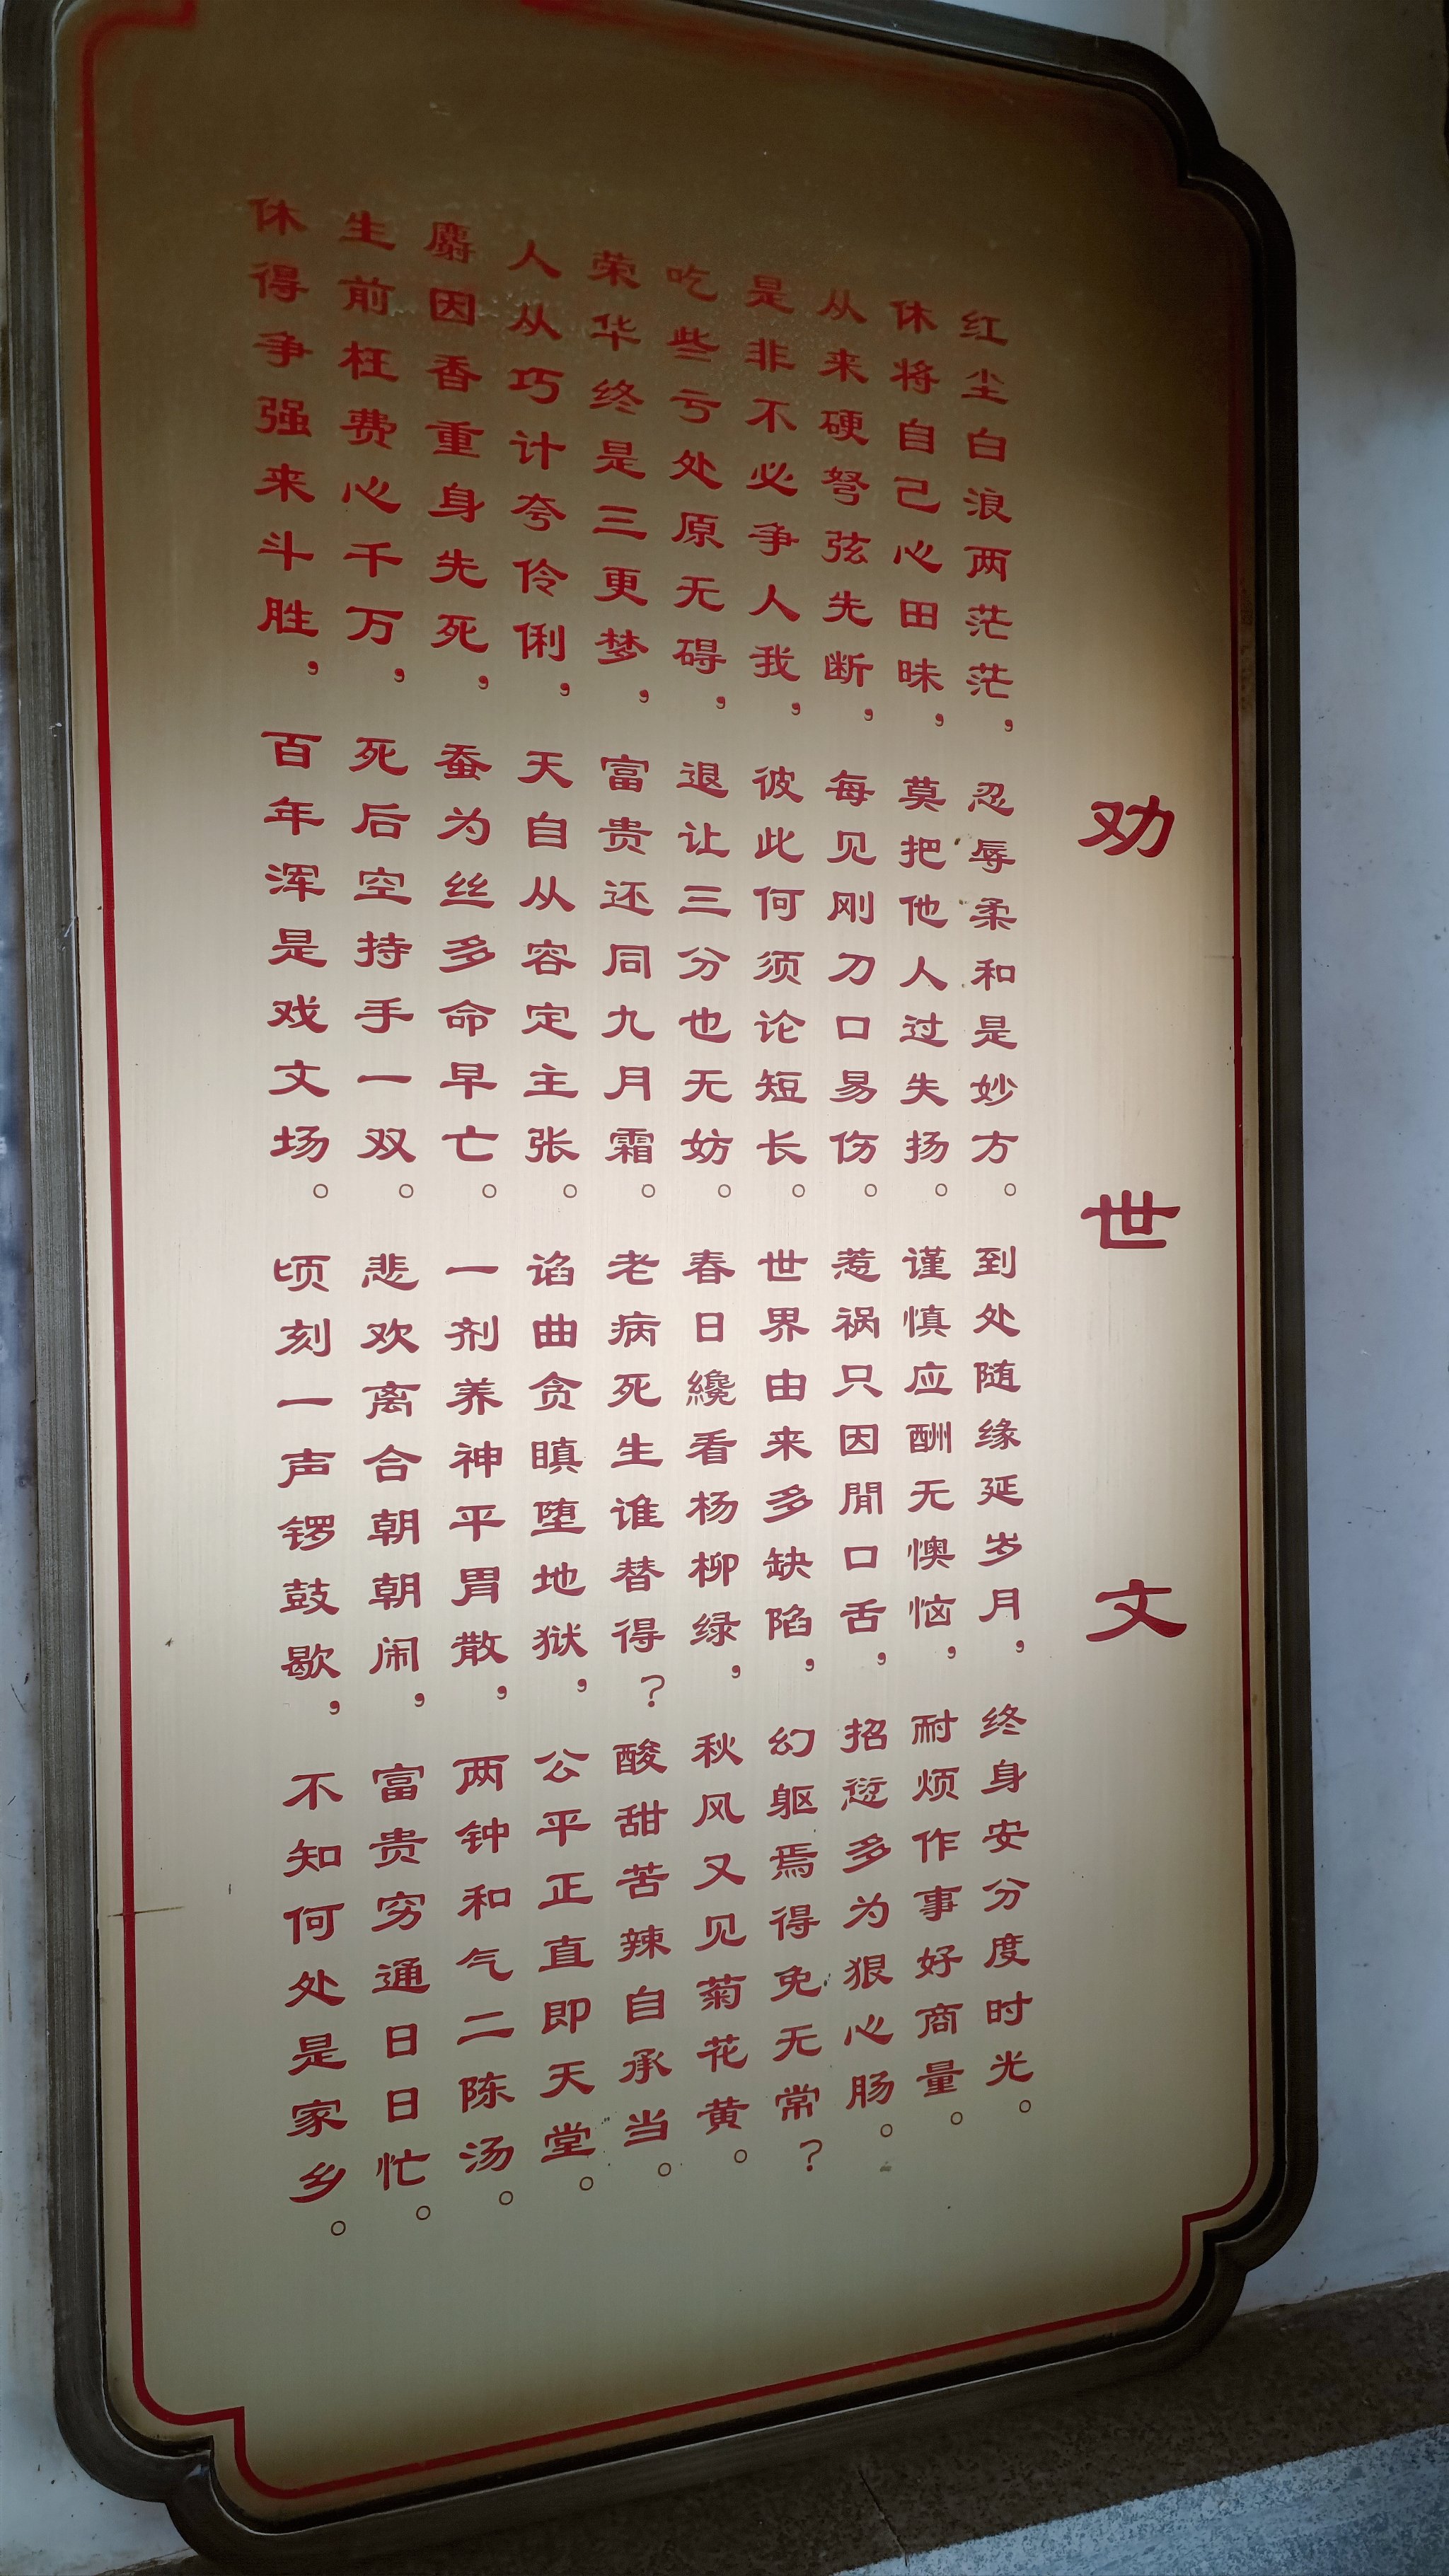 劝世文
红尘白浪两茫茫，忍辱柔和是妙方。到处随缘延岁月，终身安分度时光。
休将自己心田昧，莫把他人过失扬。谨慎应酬无懊恼，耐烦作事好商量。
从来硬弩弦先断，每见刚刀口易伤。惹祸只因閒口舌，招愆多为狠心肠。
是非不必争人我，彼此何须论短长。世界由来多缺陷，幻躯焉得免无常？
吃些亏处原无碍，退让三分也无妨。春日纔看杨柳绿，秋风又见菊花黄。
荣华终是三更梦，富贵还同九月霜。老病死生谁替得？酸甜苦辣自承当。
人从巧计夸伶俐，天自从容定主张。谄曲贪瞋堕地狱，公平正直即天堂。
麝因香重身先死，蚕为丝多命早亡。一剂养神平胃散，两钟和气二陈汤。
生前枉费心千万，死后空持手一双。悲欢离合朝朝闹，富贵穷通日日忙。
休得争强来斗胜，百年浑是戏文场。顷刻一声锣鼓歇，不知何处是家乡。